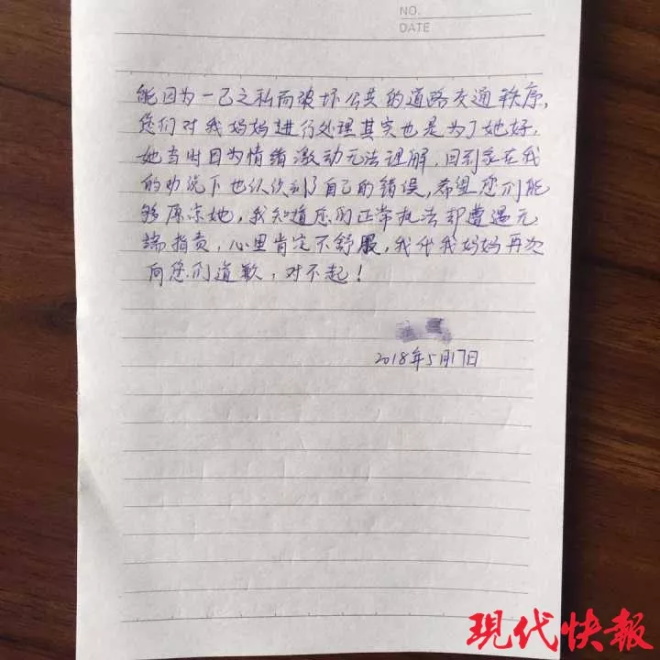 NO.
DATE
能因为一己之私而破坏公共的道路交通秩序,
您们对我妈妈进行处理其实也是为了她好,
她当时因为情绪激动无法理解,回到家在我
的劝说下也认识到了自己的错误,希望您们能
够原谅她,我知道您们正常执法却遭遇无
端指责,心里肯定不舒服,我代我妈妈再次
向您们道歉,对不起!
2018年5月17日
現代快報